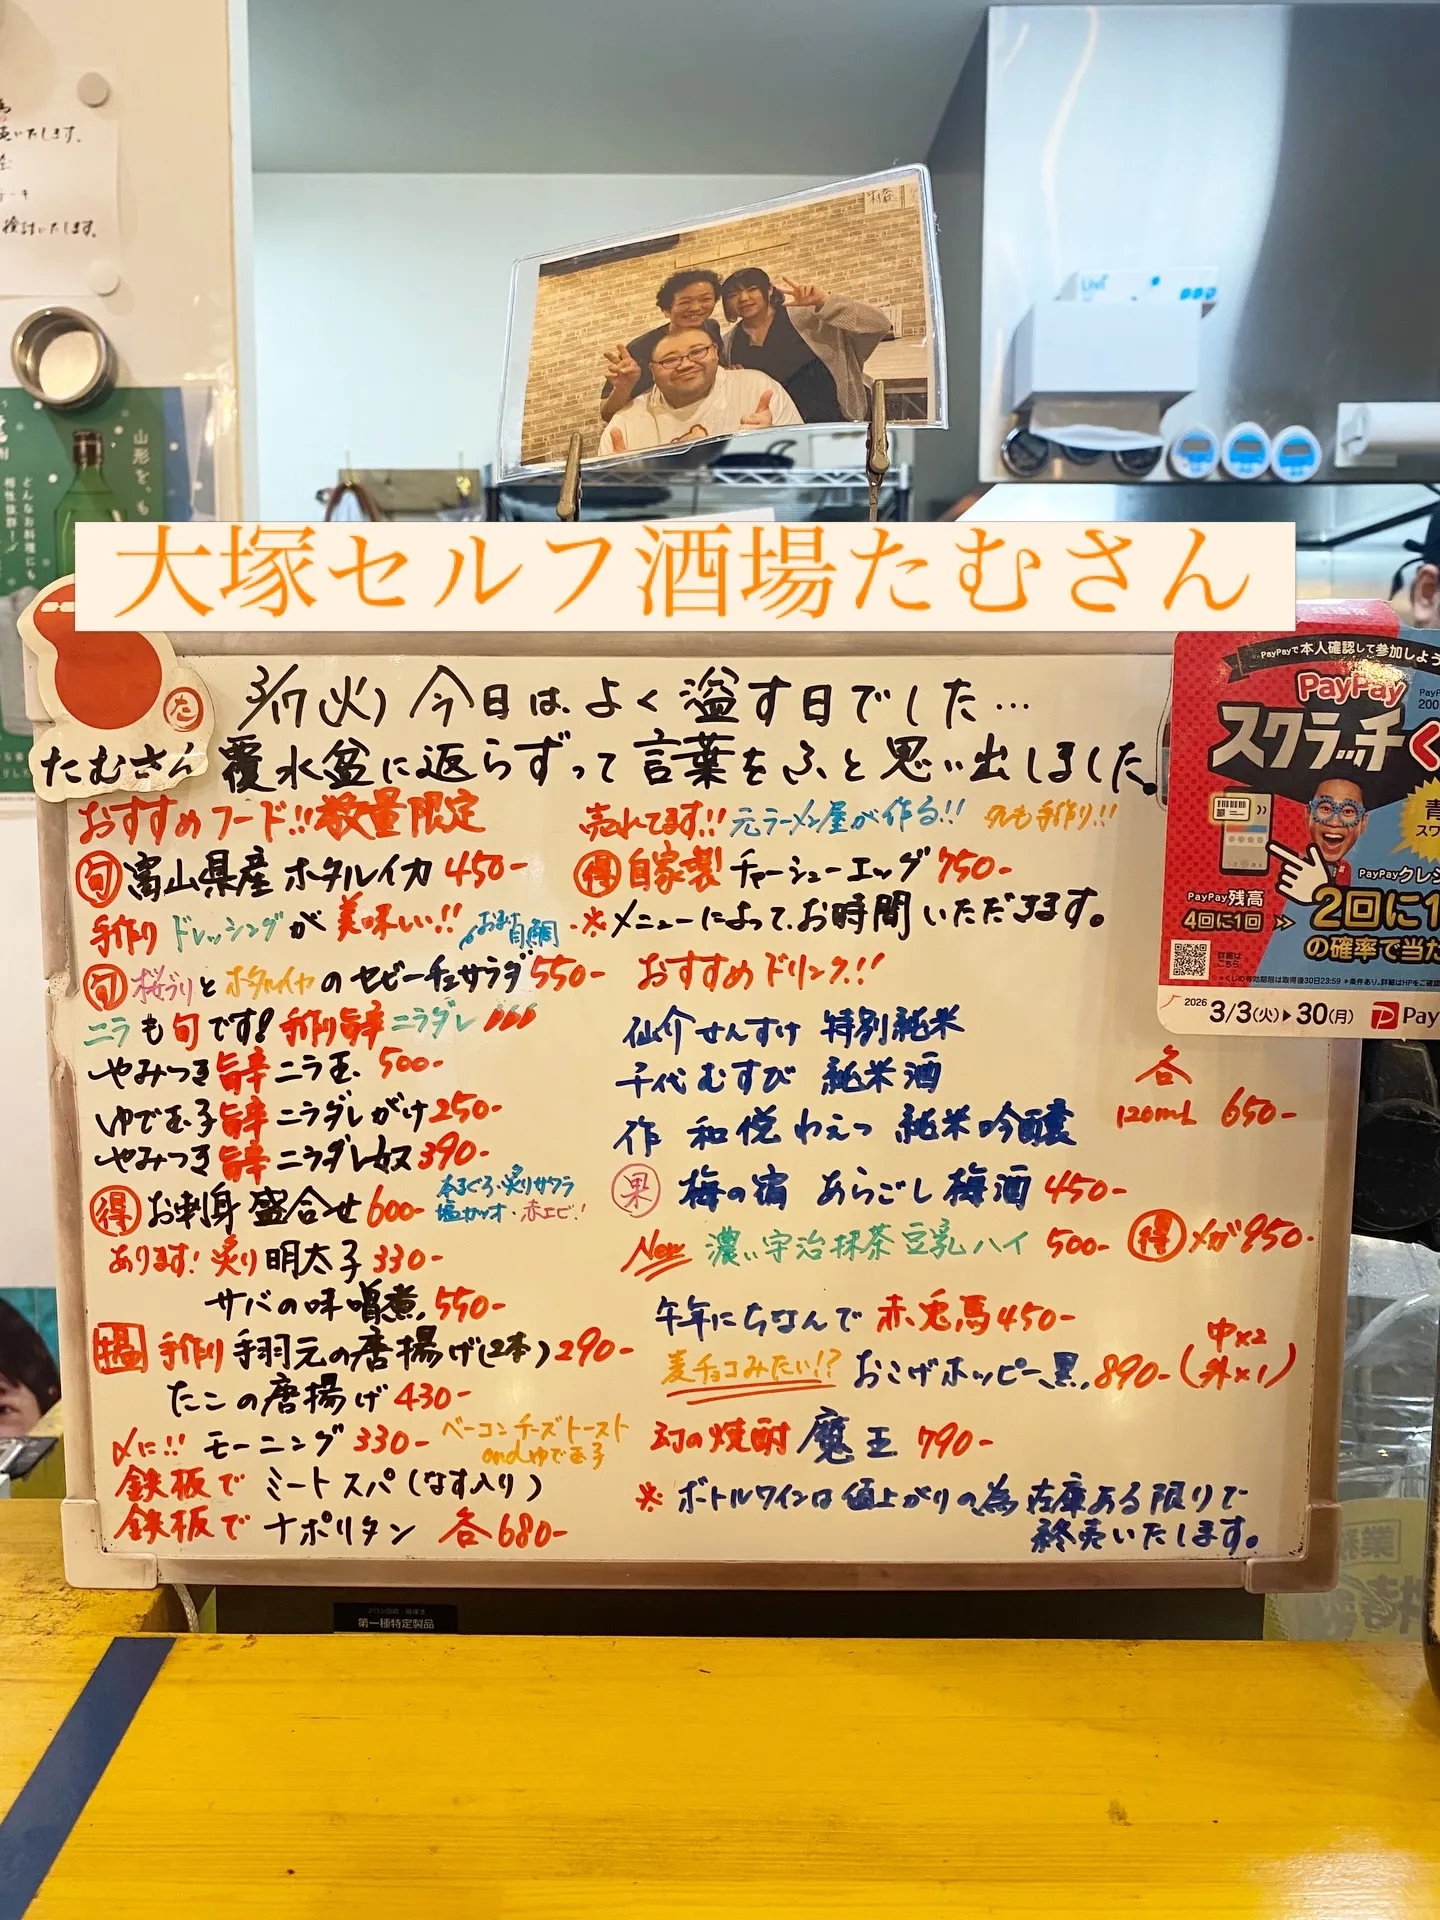 いたします。
検討いたします。
山形を、も
どんなお料理にも
相性抜群!
大塚セルフ酒場たむさん
た
たむさん
3/17(火) 今日は、よく溢す日でした…
覆水盆に返らずって言葉をふと思い出しました。
おすすめフード!!数量限定
旬 富山県産 ホタルイカ 450-
手作り ドレッシングが 美味しい!!
旬 桜ぶりとホタルイカのセビーチェサラダ 550-
ニラも旬です! 手作り旨辛ニラダレ
やみつき旨辛ニラ玉 500-
ゆで玉子旨辛ニラダレがけ 250-
やみつき旨辛ニラダレ奴 390-
得 お刺身盛合せ 600- 本まぐろ・炙りサワラ
塩カツオ・赤エビ!
あります! 炙り明太子 330-
サバの味噌煮 550-
手作り 手羽元の唐揚げ(2本) 290-
たこの唐揚げ 430-
〆に!! モーニング 330- ベーコンチーズトースト
andゆで玉子
鉄板で ミートスパ(なす入り)
鉄板で ナポリタン 各680-
売れてます!! 元ラーメン屋が作る!! タレも手作り!!
得 自家製 チャーシューエッグ 750-
※メニューによって、お時間いただきます。
おすすめドリンク!!
仙介せんすけ 特別純米
千代むすび 純米酒
作 和悦わえつ 純米吟醸
各
120mL 650-
果 梅の宿 あらごし梅酒 450-
New 濃い宇治抹茶豆乳ハイ 500- 得 メガ 950-
午年にちなんで 赤兎馬 450-
麦チョコみたい!? おこげホッピー黒 890- (中×2
外×1)
幻の焼酎 魔王 790-
※ ボトルワインは値上がりの為在庫ある限りで
終売いたします。
PayPayで本人確認して参加しよう
PayPay
スクラッチく
PayPay残高
4回に1回
PayPayクレジ
2回に1
の確率で当た
詳細は
こちら
2026
3/3(火)▶30(月)
Pay
第一種特定製品